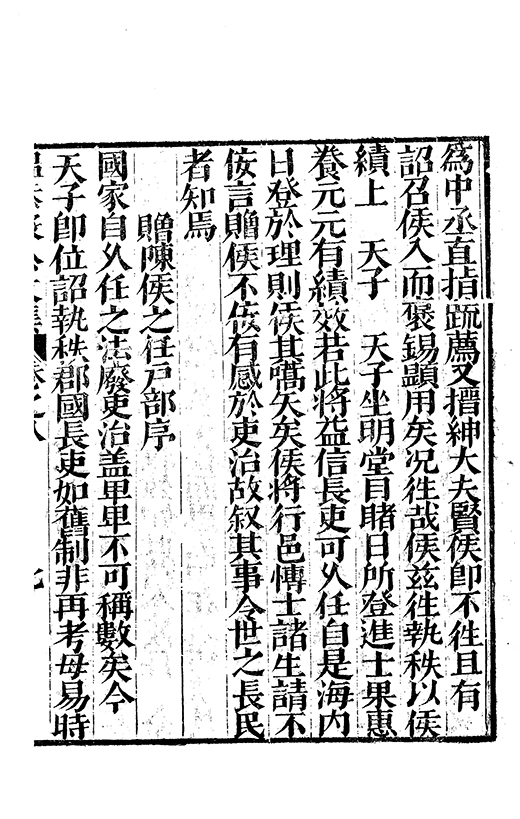 為中丞直指疏薦又搢紳大夫賢侯卽不徃且有
詔召侯入而褒錫顯用矣况徃哉侯兹徃執秩以侯
績上　天子　天子坐明堂目睹日所登進士果惠
養元元有績效若此將益信長吏可久任自是海内
日登於理則侯其嚆矢矣侯將行邑愽士諸生請不
佞言贈侯不佞有感於吏治故叙其事令世之長民
者知焉
贈陳侯之任戸部序
國家自久任之法廢吏治盖卑卑不可稱數矣今
天子卽位詔執秩郡國長吏如舊制非再考毋易時
卷之八
九